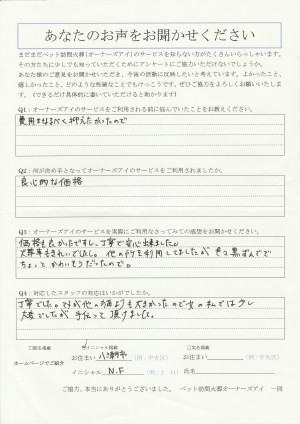 あなたのお声をお聞かせください
まだまだペット訪問火葬(オーナーズアイ)のサービスを知らない方がたくさんいらっしゃいます。
その方たちに少しでも知っていただくためにアンケートにご協力いただけないでしょうか。
あなた様のご意見をお聞かせいただき、今後の活動に反映したいと考えています。よかったこと、
嬉しかったこと、どのような些細なことでもけっこうです。ぜひご協力をよろしくお願いいたしま
す。(できるだけ具体的に書いていただけると助かります)
Q1:オーナーズアイのサービスをご利用される前に悩んでいたことをお教えください。
費用はなるべく抑えたかったので
Q2:何が決め手となってオーナーズアイのサービスをご利用されましたか。
良心的な価格
Q3:オーナーズアイのサービスを実際にご利用なさってみての感想をお聞かせください。
価格も良かったですし、丁寧で安心出来ました。
火葬車もきれいでしたし。他の所を利用してましたが
ちょっとかわいそうだったので。
Q4:対応したスタッフの対応はいかがでしたか。
丁寧でした。ですが他の
大変でしたが手伝って頂けました。
□匿名掲載 イニシャル掲載 □実名掲載
ホームページでご紹介
お住まい 八潮市 (例:中央区) お住まい (例:中央区)
イニシャル N.F (例:J.H)
ご協力、本当にありがとうございました。 ペット訪問火葬オーナーズアイ 一同